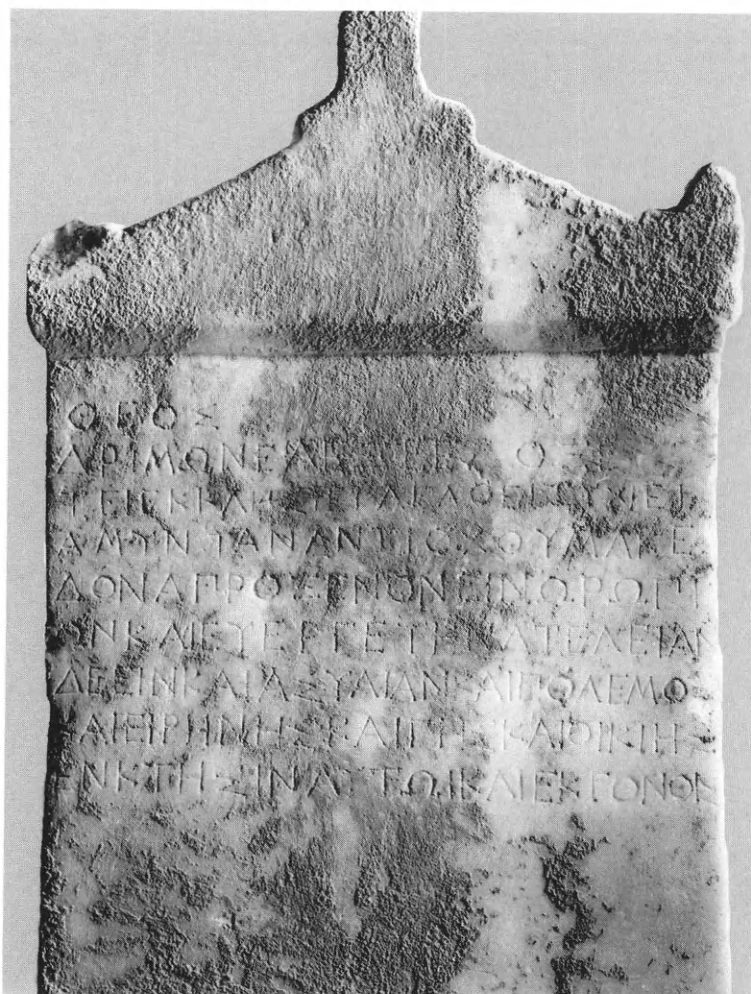 ΘΕΟΣ
ΔΡΙΜΩΝΕΛΕΞΕΝ
ΤΕΙΕΚΚΛΗΣΙΕΙΑΓΑΘΕΙΤΥΧΕΙ
ΑΜΥΝΤΑΝΑΝΤΙΟΧΟΥΜΑΚΕ
ΔΟΝΑΠΡΟΞΕΝΟΝΕΙΝΩΡΩΠΙ
ΩΝΚΑΙΕΥΕΡΓΕΤΗΝΑΤΕΛΕΙΑΝ
ΔΕΕΙΝΚΑΙΑΣΥΛΙΑΝΚΑΙΠΟΛΕΜΟ
ΚΑΙΕΙΡΗΝΗΣΚΑΙΓΗΣΚΑΙΟΙΚΙΗΣ
ΕΝΚΤΗΣΙΝΑΥΤΩΙΚΑΙΕΚΓΟΝΟΙΣ